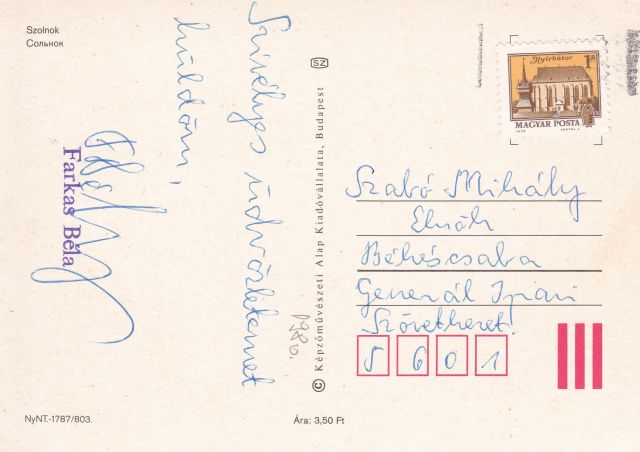 Szolnok
Сольнок
Szívélyes üdvözletemet
küldöm,
Farkas Béla
NyNT.-1787/803.
Ára: 3,50 Ft
© Képzőművészeti Alap Kiadóvállalata, Budapest
SZ
Nyírbátor
1 Ft
MAGYAR POSTA
Szabó Mihály
Elnök
Békéscsaba
Generál Ipari
Szövetkezet!
5 6 0 1